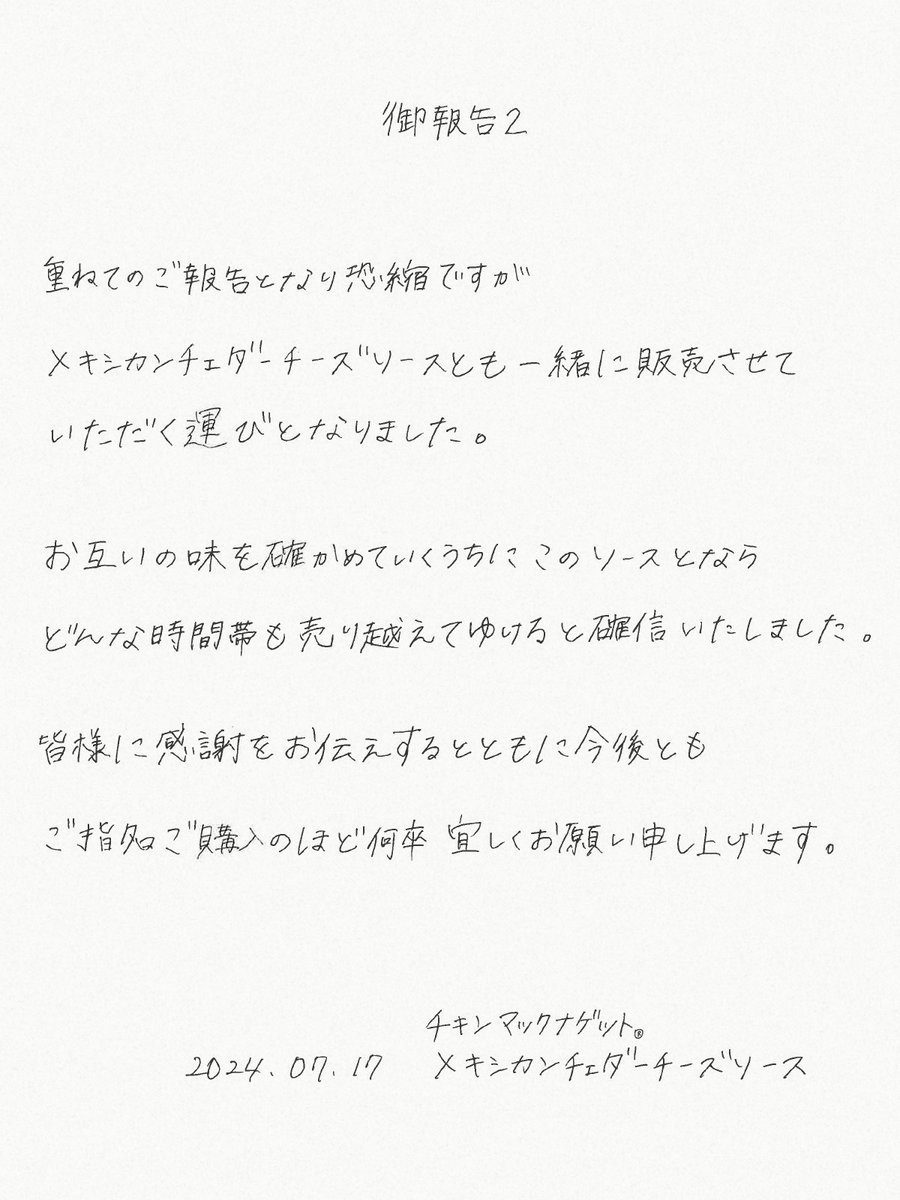 御報告2
重ねてのご報告となり恐縮ですが
メキシカンチェダーチーズソースとも一緒に販売させて
いただく運びとなりました。
お互いの味を確かめていくうちにこのソースとなら
どんな時間帯も売り越えてゆけると確信いたしました。
皆様に感謝をお伝えするとともに今後とも
ご指名ご購入のほど何卒宜しくお願い申し上げます。
チキンマックナゲット®
2024.07.17 メキシカンチェダーチーズソース